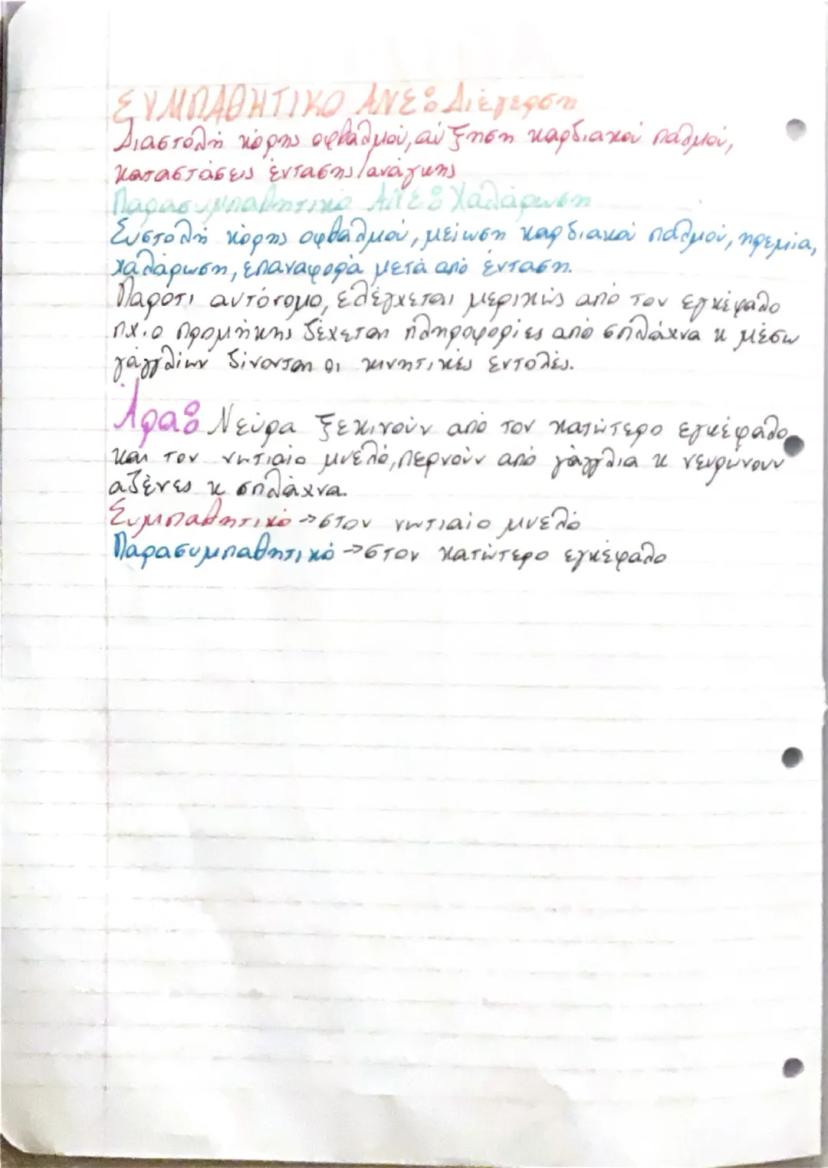 ΣΥΜΠΑΘΗΤΙΚΟ ΑΝΣ: Διέγερση
Διαστολή κόρης οφθαλμού, αύξηση καρδιακού παλμού,
καταστάσεις έντασης/ανάγκης
Παρασυμπαθητικό ΑΝΣ: Χαλάρωση
Συστολή κόρης οφθαλμού, μείωση καρδιακού παλμού, ηρεμία,
χαλάρωση, επαναφορά μετά από ένταση.
Παρότι αυτόνομο, ελέγχεται μερικώς από τον εγκέφαλο
π.χ. ο προμήκης δέχεται πληροφορίες από σπλάχνα κ μέσω
γάγγλίων δίνονται οι κινητικές εντολές.
Άρα: Νεύρα ξεκινούν από τον κατώτερο εγκέφαλο
και τον νωτιαίο μυελό, περνούν από γάγγλια κ νευρώνουν
αδένες κ σπλάχνα.
Συμπαθητικό → στον νωτιαίο μυελό
Παρασυμπαθητικό → στον κατώτερο εγκέφαλο